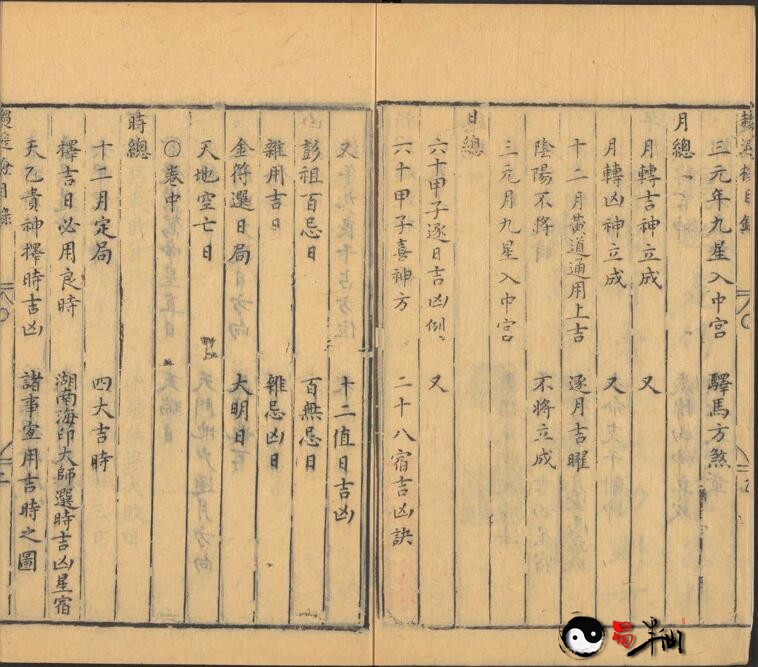 三元年九星入中宮 驛馬方煞
月總
月轉吉神立成 又
月轉凶神立成 又
十二月黃道通用上吉 逐月吉曜
陰陽不將 不將立成
三元月九星入中宮
日總
六十甲子逐日吉凶例 又
六十甲子喜神方 二十八宿吉凶訣
十二值日吉凶
彭祖百忌日 百無忌日
雜用吉日 雜忌凶日
金符選日局 大明日
天地空亡日
〇卷中
時總
十二月定局 四大吉時
擇吉日必用良時 湖南海印大師選時吉凶星宿
天乙貴神擇時吉凶 諸事宜用吉時之圖
易半仙